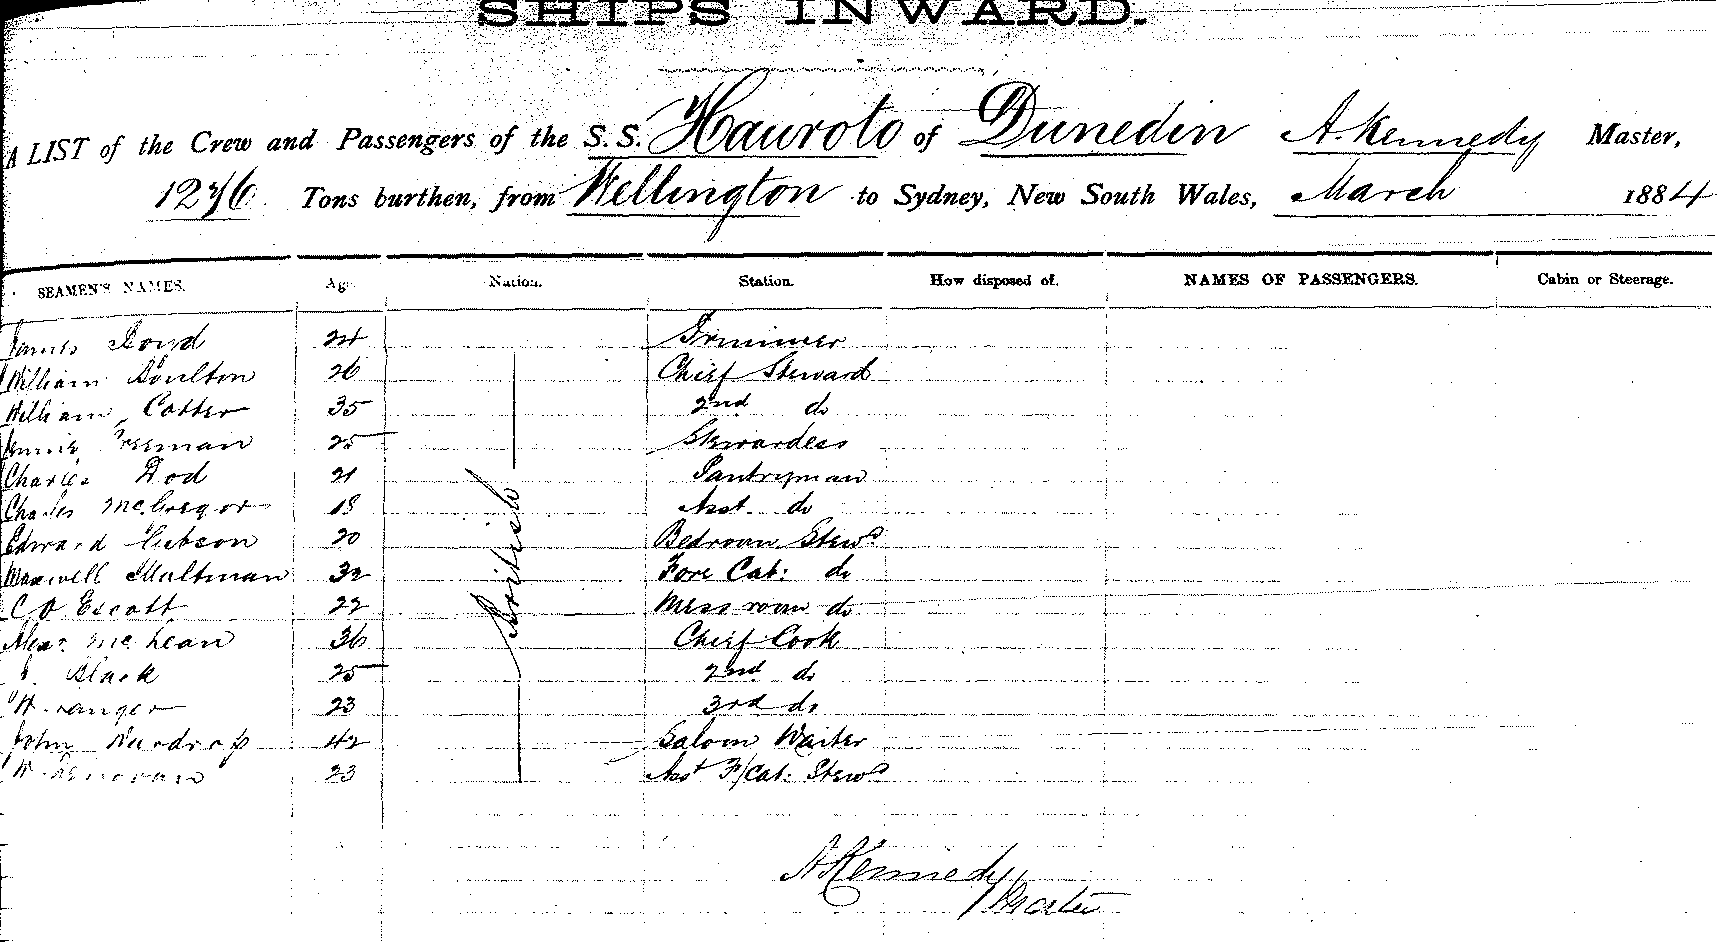 SHIPS INWARD.
A LIST of the Crew and Passengers of the S.S. Hauroto of Dunedin A. Kennedy Master,
1276 Tons burthen, from Wellington to Sydney, New South Wales, March 1884
SEAMEN'S NAMES. Age Nation. Station. How disposed of. NAMES OF PASSENGERS. Cabin or Steerage.
James 24 Trimmer
William Boulton 26 Chief Steward
William Cotter 35 2nd do
Freeman 25 Stewardess
Charles Dod 21 Pantryman
Charles McGregor 18 Asst. do
Edward Gibson 20 Bedroom Stewd
Maxwell Maltman 32 Fore Cab: do
British
C Escott 22 Mess room do
Alexr. McLean 36 Chief Cook
Black 25 2nd do
W. 23 3rd do
John Wardrop 42 Saloon Waiter
W. 23 Asst F/Cab: Stewd
A Kennedy
Master